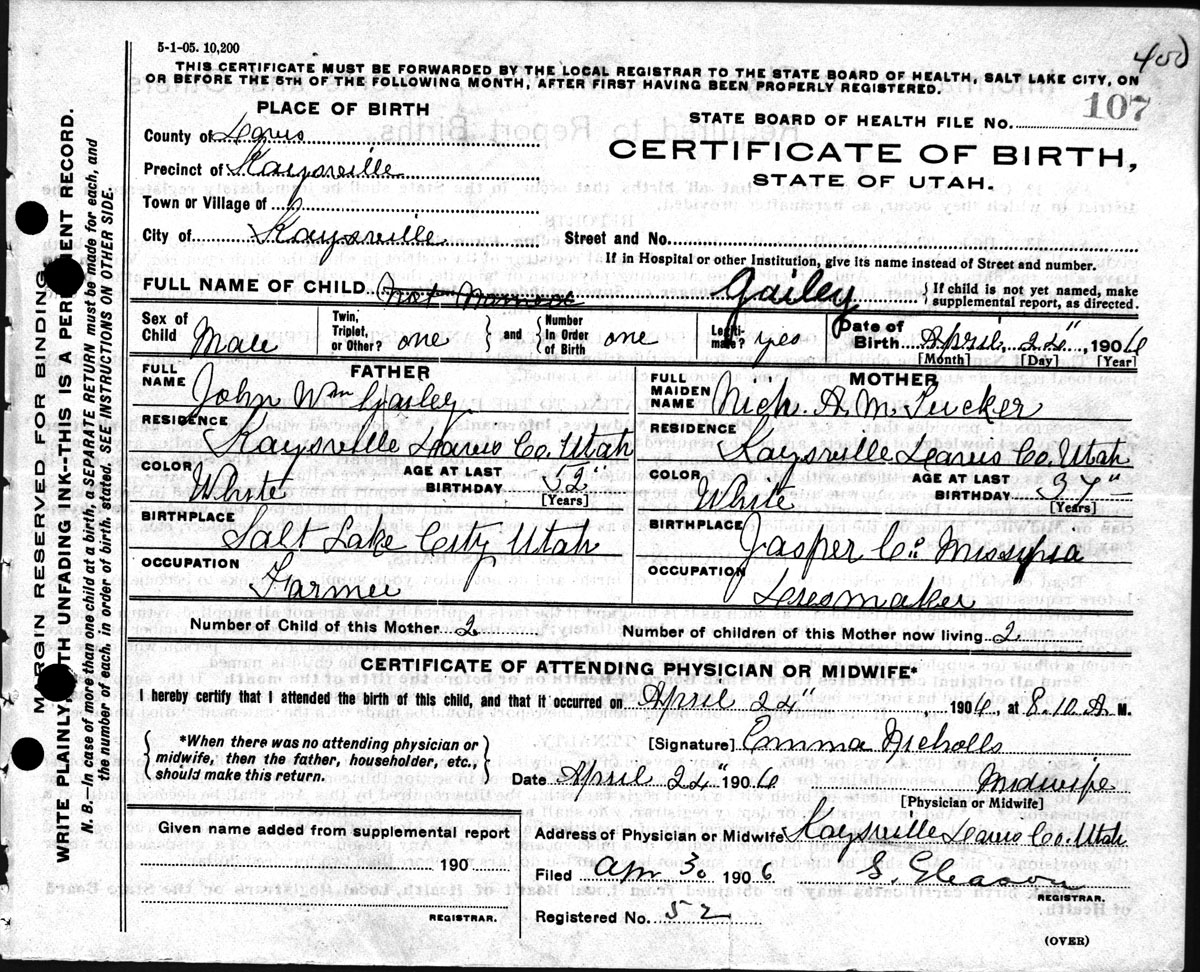 5-1-05. 10,200
400
THIS CERTIFICATE MUST BE FORWARDED BY THE LOCAL REGISTRAR TO THE STATE BOARD OF HEALTH, SALT LAKE CITY, ON
OR BEFORE THE 5TH OF THE FOLLOWING MONTH, AFTER FIRST HAVING BEEN PROPERLY REGISTERED.
107
PLACE OF BIRTH
STATE BOARD OF HEALTH FILE NO.
County of Davis
CERTIFICATE OF BIRTH,
Precinct of Kaysville
STATE OF UTAH.
Town or Village of
City of Kaysville Street and No.
If in Hospital or other Institution, give its name instead of Street and number.
FULL NAME OF CHILD Not Named Gailey { If child is not yet named, make supplemental report, as directed.
Sex of Child Male Twin, Triplet, or Other? one } and { Number in Order of Birth one Legiti- mate? yes Date of Birth April, 22", 1906
[Month] [Day] [Year]
FATHER
FULL NAME John Wm Gailey
RESIDENCE Kaysville Davis Co. Utah
COLOR White AGE AT LAST BIRTHDAY 52"
[Years]
BIRTHPLACE Salt Lake City Utah
OCCUPATION Farmer
MOTHER
FULL MAIDEN NAME A. M. Tucker
RESIDENCE Kaysville Davis Co. Utah
COLOR White AGE AT LAST BIRTHDAY 37"
[Years]
BIRTHPLACE Jasper Co.
OCCUPATION Dressmaker
Number of Child of this Mother 2 Number of children of this Mother now living 2
CERTIFICATE OF ATTENDING PHYSICIAN OR MIDWIFE*
I hereby certify that I attended the birth of this child, and that it occurred on April 22" 1906, at 8.10 A. M.
{ *When there was no attending physician or midwife, then the father, householder, etc., should make this return. }
[Signature] Emma Nicholls
Date April 22" 1906 Midwife
[Physician or Midwife]
Given name added from supplemental report
190
REGISTRAR.
Address of Physician or Midwife Kaysville Davis Co. Utah
Filed Apr 30 1906 S. Gleason
REGISTRAR.
Registered No. 52
(OVER)
MARGIN RESERVED FOR BINDING
WRITE PLAINLY WITH UNFADING INK--THIS IS A PERMANENT RECORD.
N. B.—In case of more than one child at a birth, a SEPARATE RETURN must be made for each, and
the number of each, in order of birth, stated. SEE INSTRUCTIONS ON OTHER SIDE.